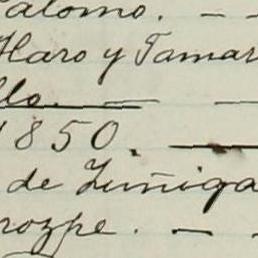 Palomo. — —
Haro y Tamar
llo. — —
1850. —
de Zuñiga
rozpe. — —